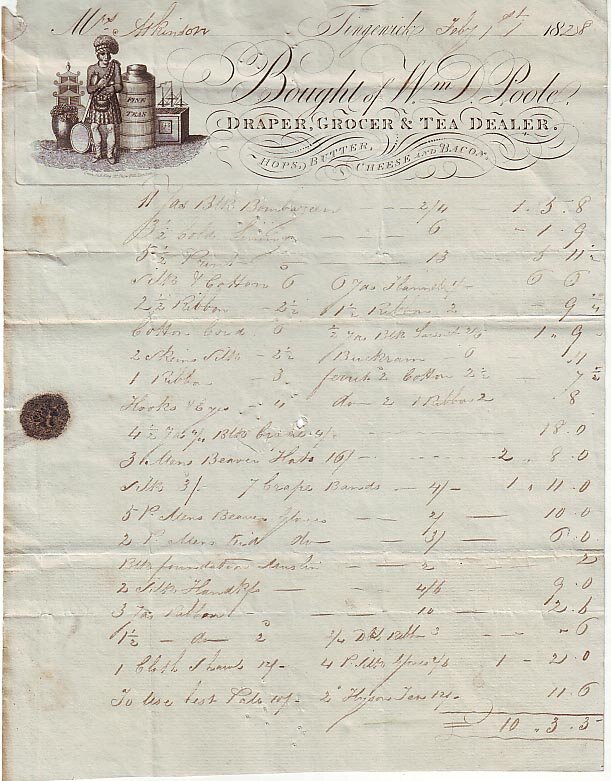 Mrs Atkinson Tingewick Feby 1st 1828
Bought of Wm D Poole.
DRAPER, GROCER & TEA DEALER.
HOPS, BUTTER, CHEESE AND BACON.
FINE TEAS
11 Yds Blk Bombazeen 2/4 1 . 5 . 8
3 1/2 6 1 . 9
5 1/2 Print 13 5 11 1/2
Silk & Cotton 6 6 Yds Flannel 6 6
2 1/2 Ribbon 2 1/2 1 1/2 Ribbon 2 9
Cotton Cord 6 1/2 Yds Blk 1 . 9
2 Skins Silk 2 1/2 Buckram 6 11
1 Ribbon 3 ferrit 2 Cotton 2 1/2 7 1/2
Hooks & Eyes 4 do 2 1 Ribbon 2 8
4 1/2 Yds Blk Crape 4/- 18 . 0
3 Mens Beaver Hats 16/- 2 . 8 . 0
Silk 3/- 7 Crape Bands 4/- 1 . 11 . 0
5 Pr Mens Beaver Gloves 2/ 10 . 0
2 Pr Mens Kid do 3/ 6 . 0
Blk foundation Muslin 2 2
2 Silk Handkfs 4/6 9 . 0
3 Yds Ribbon 10 2 . 6
1 1/2 do 2 3 6
1 Cloth Shawl 12/- 4 Pr Silk Gloves 1 2 . 0
To Use best Palls 10/- 2 Hyson Tea 11 . 6
10 . 3 . 5